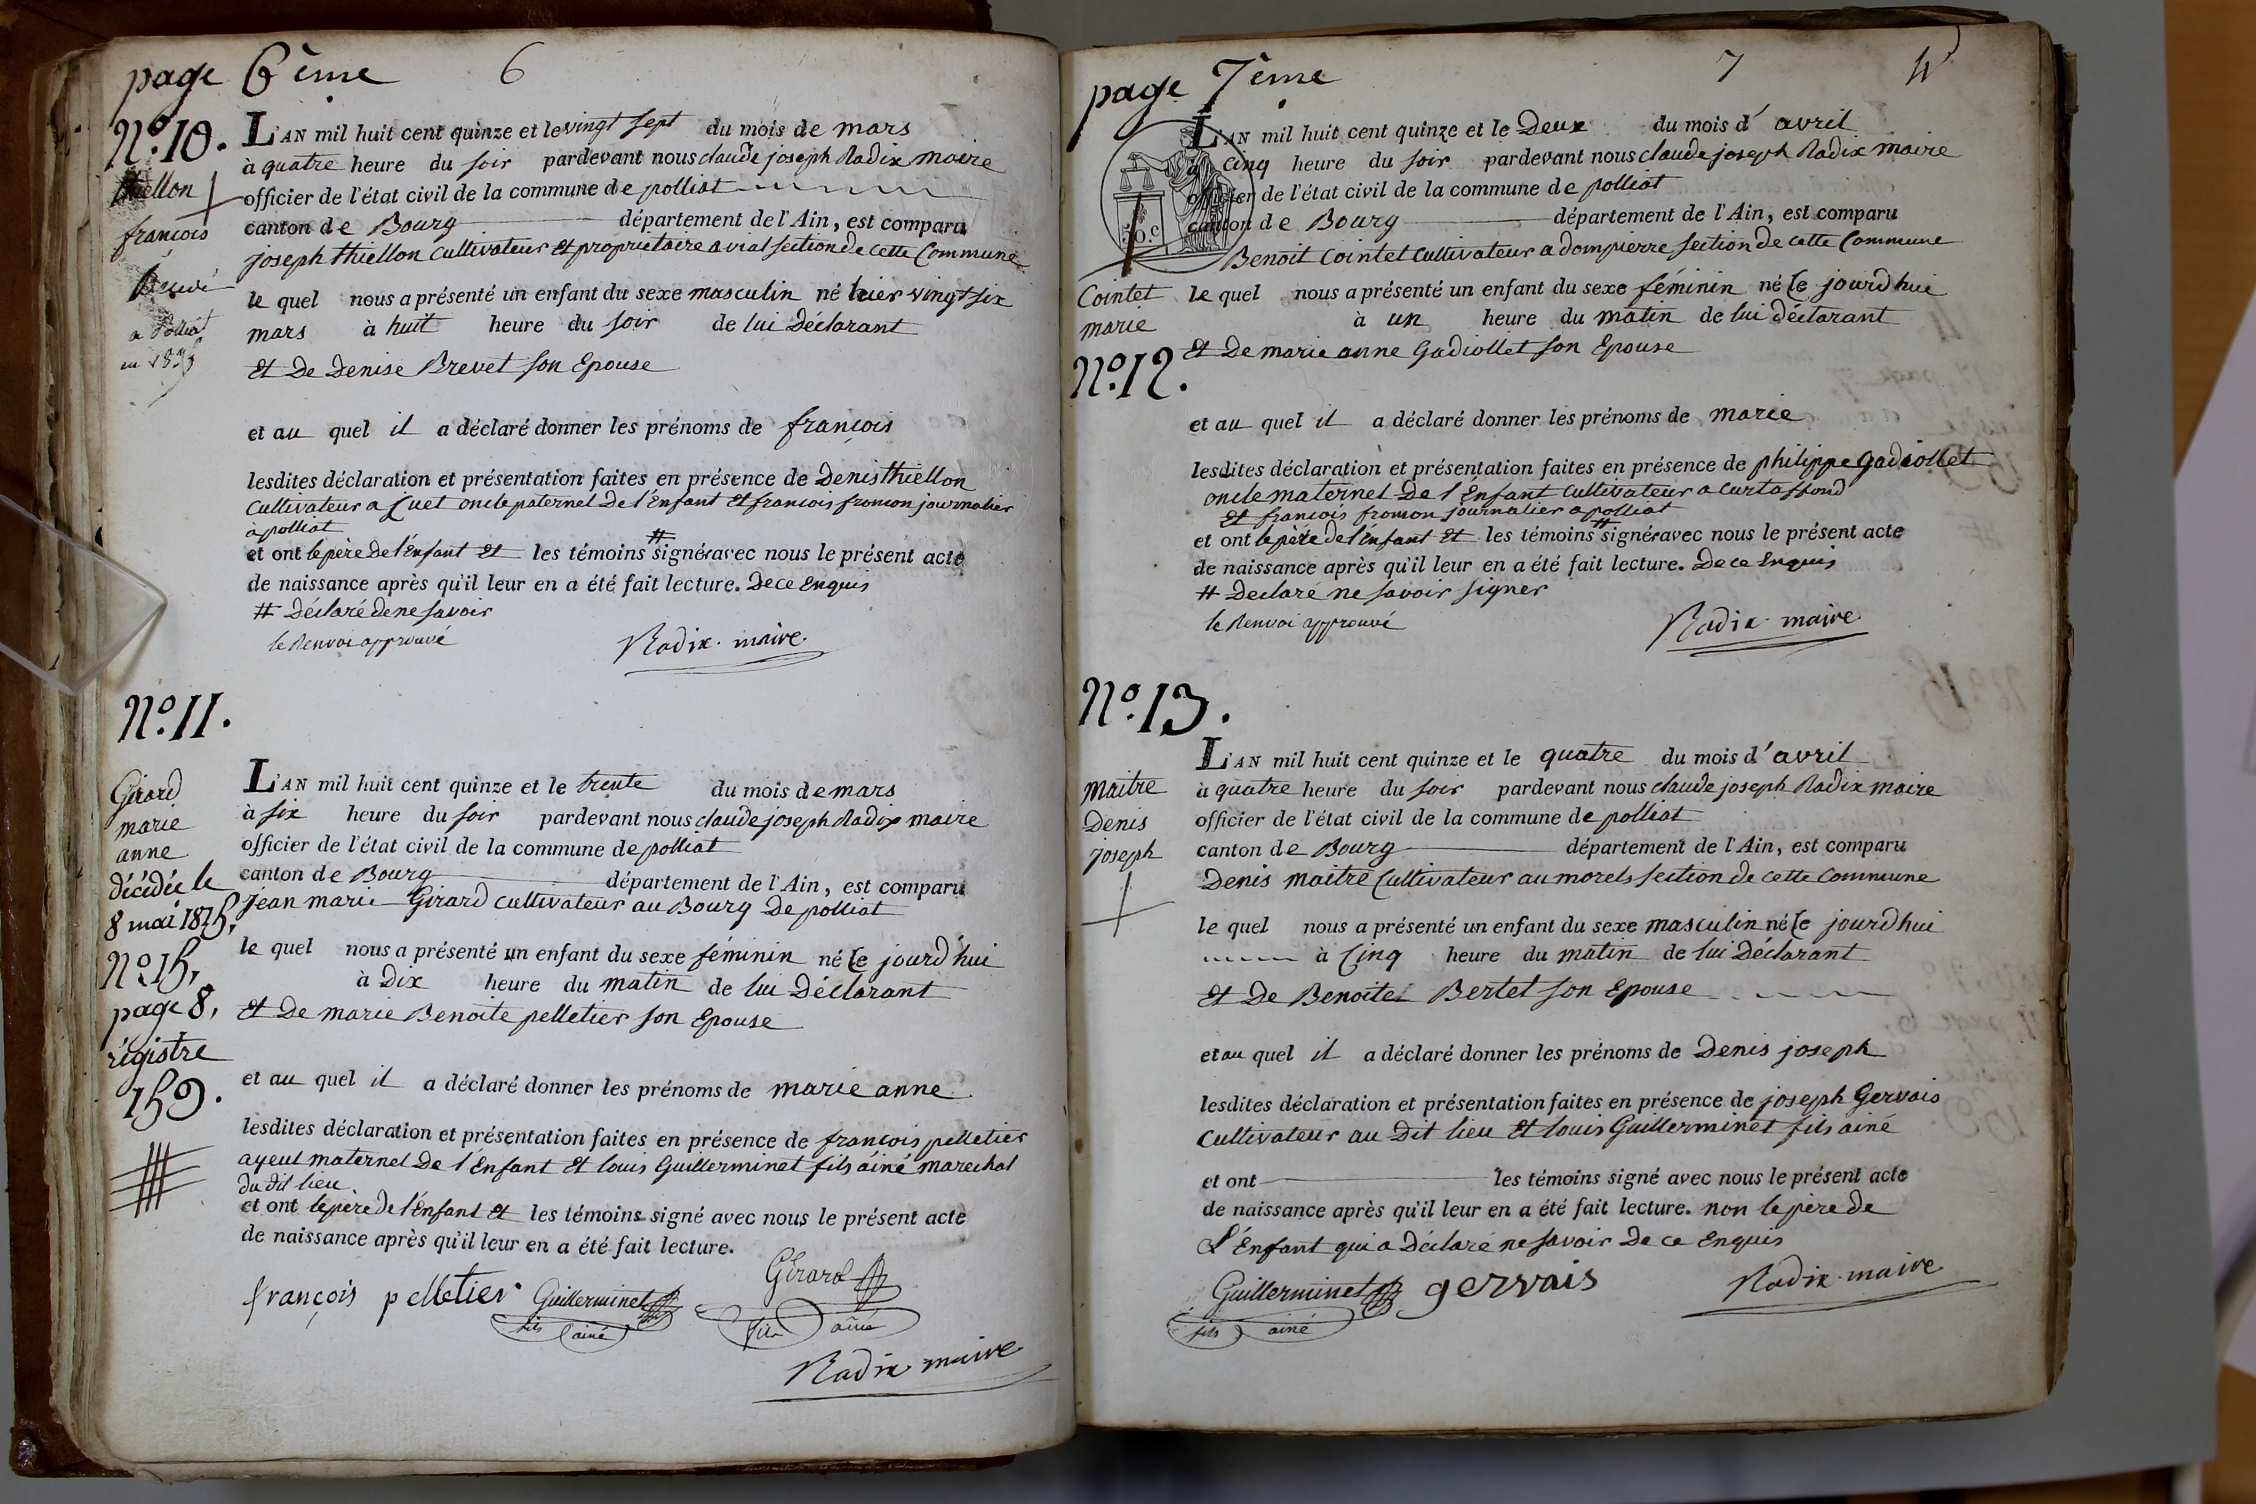 page 6ème 6
N.º 10.
thiellon
françois
a Polliat
L'AN mil huit cent quinze et le vingt sept du mois de mars
à quatre heure du soir pardevant nous claude joseph Radix maire
officier de l'état civil de la commune de polliat
canton de Bourg département de l'Ain, est comparu
joseph thiellon cultivateur et proprietaire a vial section de cette Commune
le quel nous a présenté un enfant du sexe masculin né hier vingt six
mars à huit heure du soir de lui Déclarant
Et De Denise Brevet son Epouse
et au quel il a déclaré donner les prénoms de françois
lesdites déclaration et présentation faites en présence de Denis thiellon
Cultivateur a Luet oncle paternel De l'Enfant Et françois fromon journalier
à polliat
et ont le père de l'Enfant Et les témoins # signés avec nous le présent acte
de naissance après qu'il leur en a été fait lecture. De ce Enquis
# Déclaré de ne savoir
le Renvoi approuvé Radix maire
N.º 11.
Girard
marie
anne
décédée le
8 mai 1815,
Nº 15,
page 8,
régistre
159.
L'AN mil huit cent quinze et le trente du mois de mars
à six heure du soir pardevant nous claude joseph Radix maire
officier de l'état civil de la commune de polliat
canton de Bourg département de l'Ain, est comparu
jéan marie Girard cultivateur au Bourg De polliat
le quel nous a présenté un enfant du sexe féminin né le jourd'hui
à Dix heure du matin de lui Déclarant
Et De marie Benoite pelletier son Epouse
et au quel il a déclaré donner les prénoms de marie anne
lesdites déclaration et présentation faites en présence de françois pelletier
ayeul maternel De l'Enfant Et louis Guillerminet fils ainé marechal
du dit lieu
et ont le père De l'énfant Et les témoins signé avec nous le présent acte
de naissance après qu'il leur en a été fait lecture.
françois pelletier Guillerminet fils ainé Girard fils ainé
Radix maire
page 7ème 7
50.c
Cointet
marie
N.º 12.
L'AN mil huit cent quinze et le Deux du mois d'avril
à Cinq heure du soir pardevant nous claude joseph Radix maire
officier de l'état civil de la commune de polliat
canton de Bourg département de l'Ain, est comparu
Benoit Cointet Cultivateur a dompierre section de cette Commune
le quel nous a présenté un enfant du sexe féminin né le jourd'hui
à un heure du matin de lui déclarant
Et De marie anne Gadiollet son Epouse
et au quel il a déclaré donner les prénoms de marie
lesdites déclaration et présentation faites en présence de philippe Gadiollet
oncle maternel De l'Énfant cultivateur a curtaffond
Et françois fromon journalier a polliat
et ont le père de l'énfant Et les témoins # signés avec nous le présent acte
de naissance après qu'il leur en a été fait lecture. De ce Enquis
# Declaré ne savoir signer
le Renvoi approuvé Radix maire
N.º 13.
maitre
Denis
Joseph
L'AN mil huit cent quinze et le quatre du mois d'avril
à quatre heure du soir pardevant nous claude joseph Radix maire
officier de l'état civil de la commune de polliat
canton de Bourg département de l'Ain, est comparu
Denis maitre Cultivateur au morels section de cette Commune
le quel nous a présenté un enfant du sexe masculin né le jourd'hui
à Cinq heure du matin de lui Déclarant
Et De Benoite Bertet son Epouse
et au quel il a déclaré donner les prénoms de Denis joseph
lesdites déclaration et présentation faites en présence de joseph Gervais
Cultivateur au Dit lieu Et louis Guillerminet fils ainé
et ont les témoins signé avec nous le présent acte
de naissance après qu'il leur en a été fait lecture. non le père de
L'Énfant qui a Déclaré ne savoir De ce Enquis
Guillerminet fils ainé gervais Radix maire